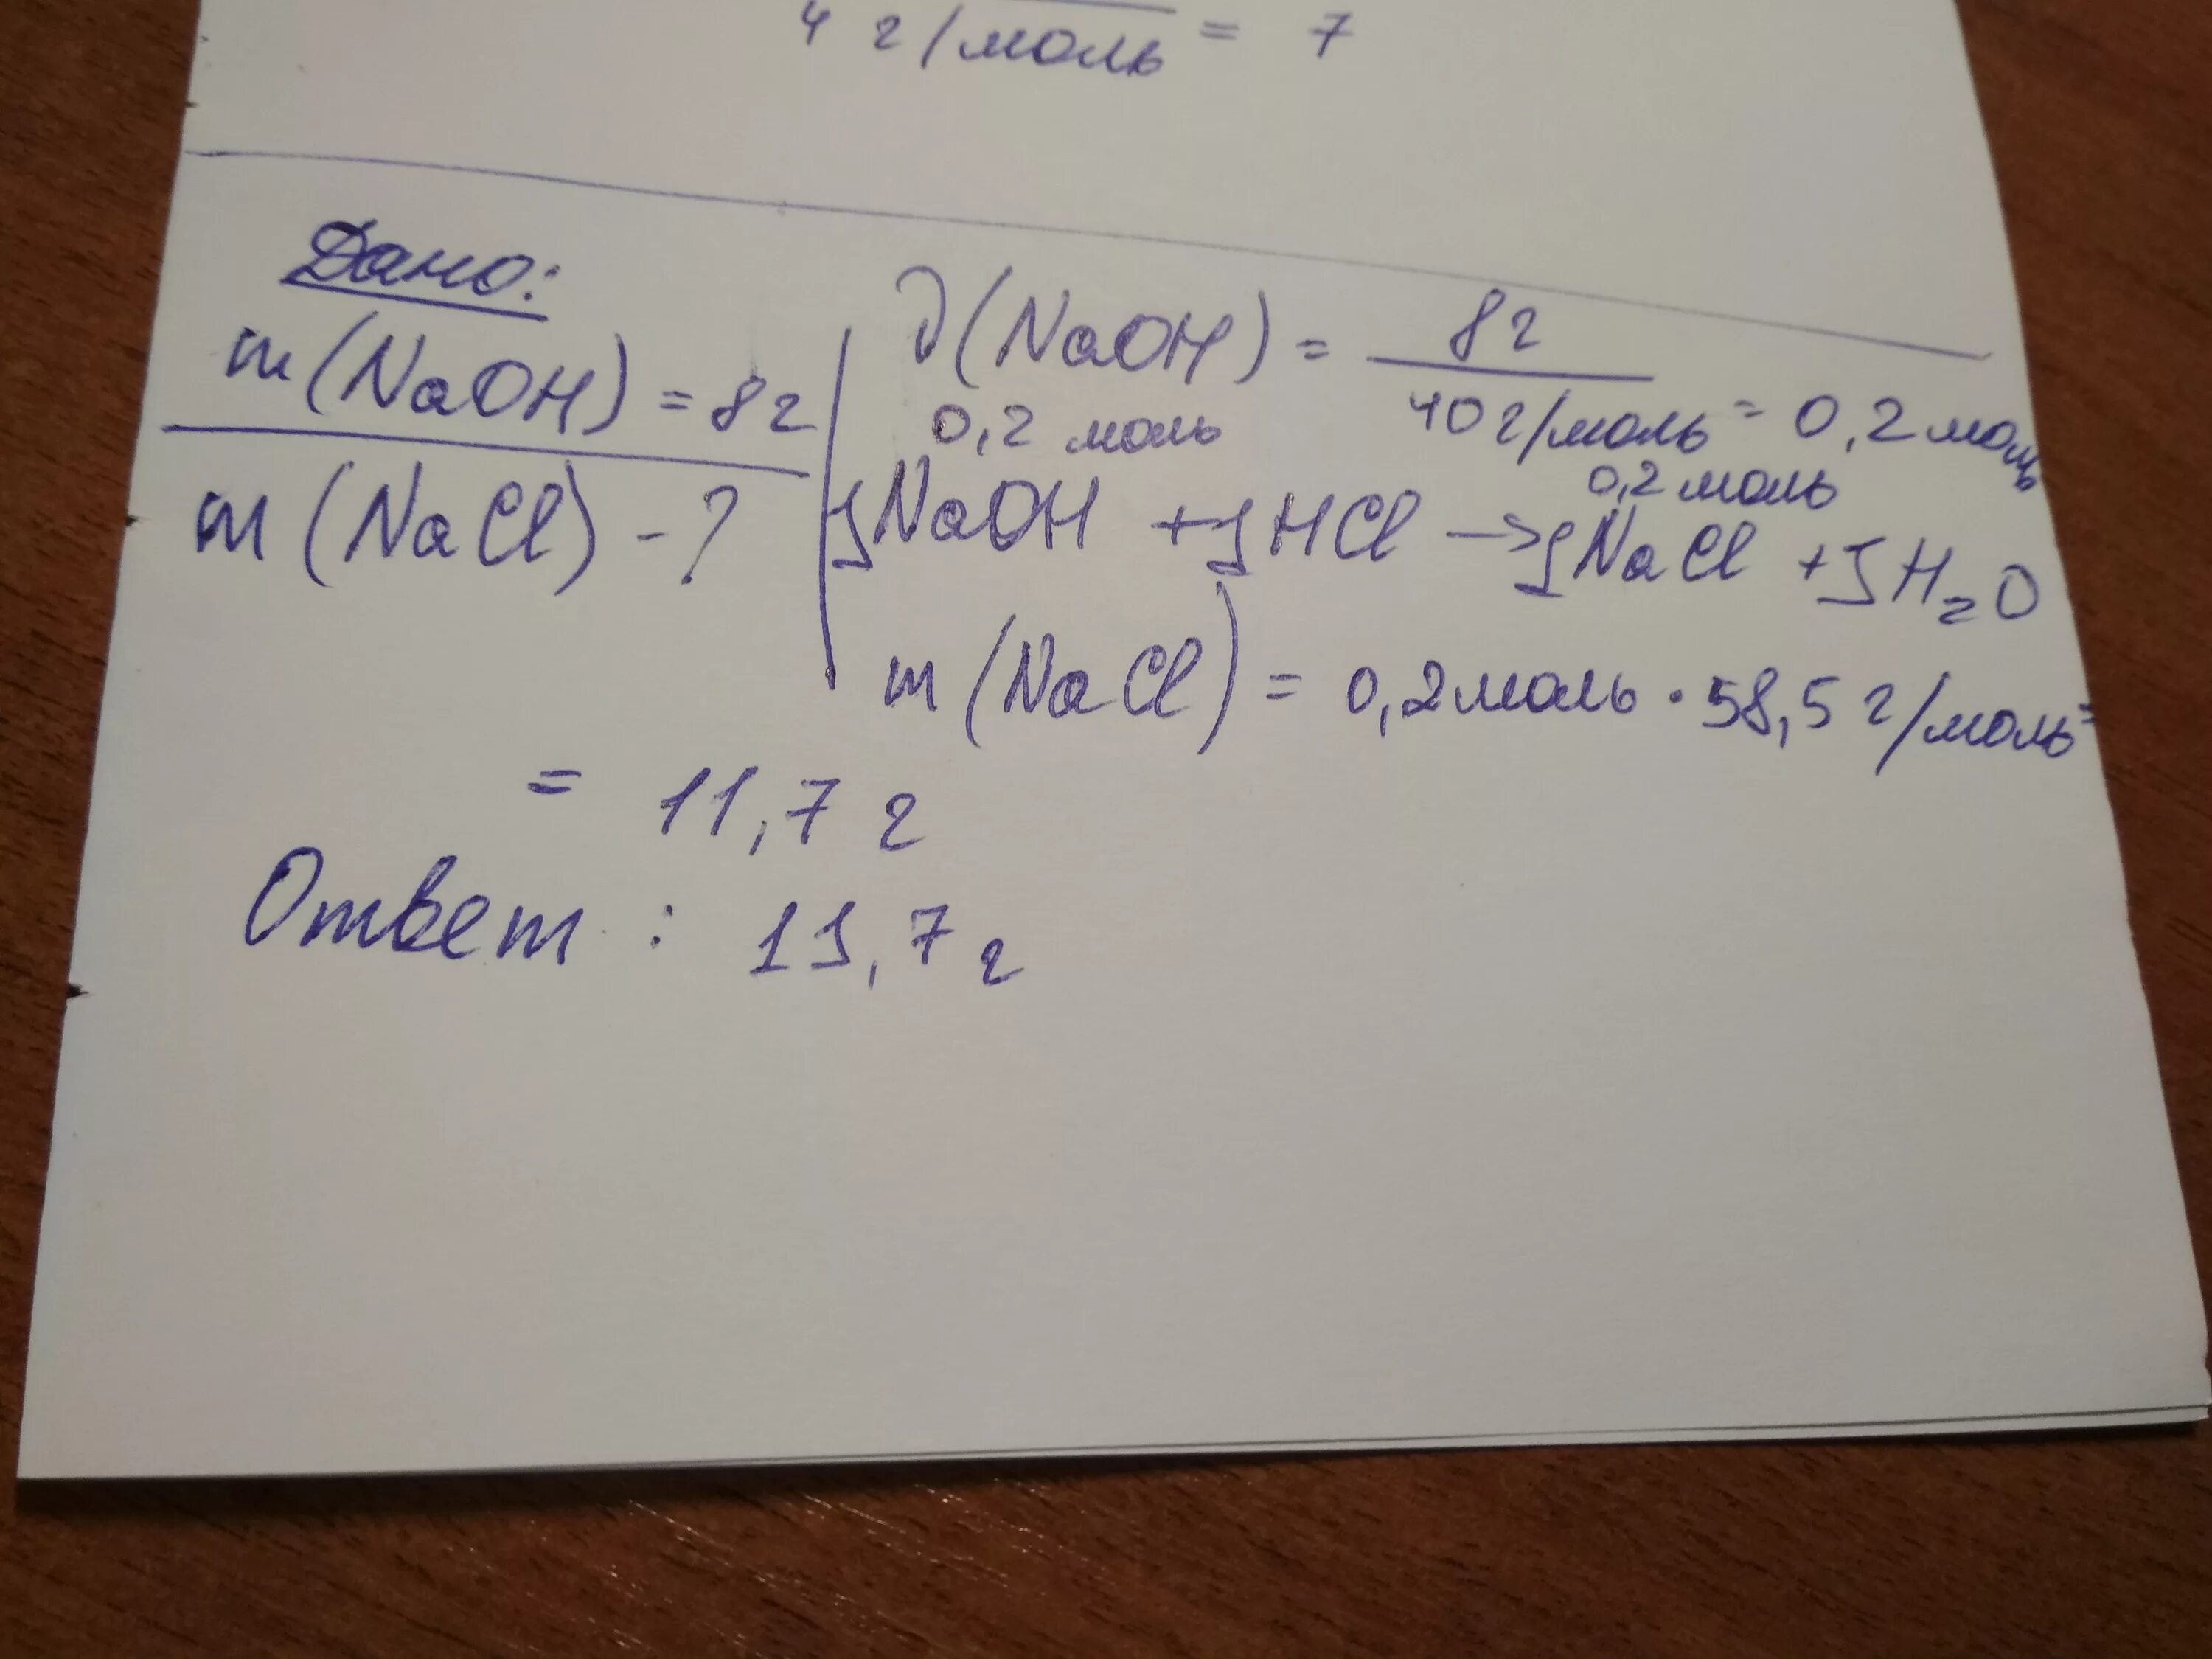 4 г/моль = 7
Дано:
m(NaOH) = 8г
m(NaCl) - ?
ν(NaOH) = 8г / 40 г/моль = 0,2 моль
0,2 моль 0,2 моль
1NaOH + 1HCl → 1NaCl + 1H₂O
m(NaCl) = 0,2 моль · 58,5 г/моль =
= 11,7 г
Ответ: 11,7 г